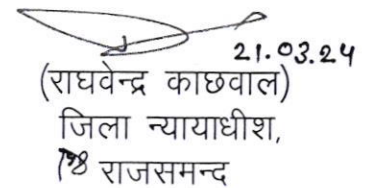 21.03.24
(राघवेन्द्र काछवाल)
जिला न्यायाधीश,
राजसमन्द